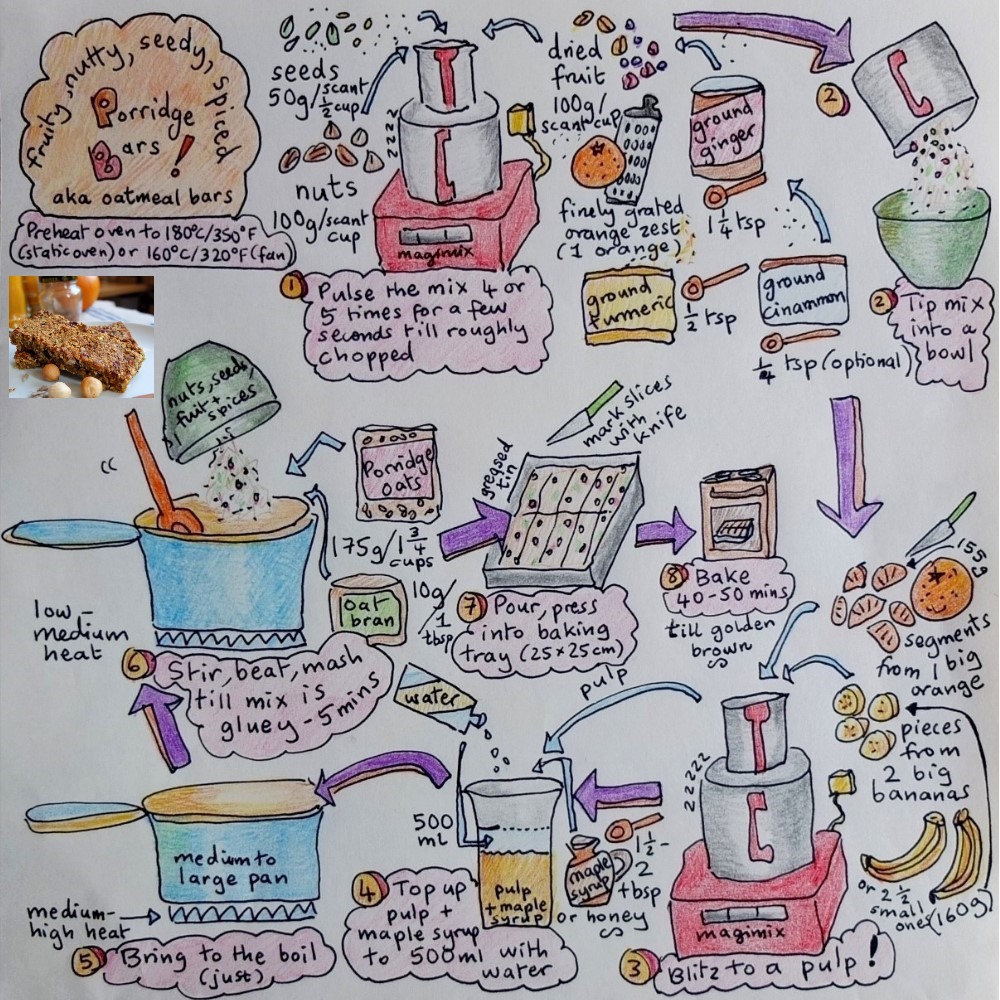 fruity, nutty, seedy, spiced
Porridge
Bars!
aka oatmeal bars
Preheat oven to 180°C/350°F
(static oven) or 160°C/320°F (fan)
seeds
50g/scant
½ cup
nuts
100g/scant
cup
zzzz
magimix
1 Pulse the mix 4 or
5 times for a few
seconds till roughly
chopped
dried
fruit
100g/
scant cup
finely grated
orange zest
(1 orange)
ground
ginger
1¼ tsp
ground
turmeric
½ tsp
ground
cinammon
¼ tsp (optional)
2
2 Tip mix
into a
bowl
155g
segments
from 1 big
orange
pieces
from
2 big
bananas
or 2½
small
one (160g)
zzzzz
magimix
3 Blitz to a pulp!
pulp
1½-
2
tbsp
maple
syrup
or honey
water
500
mL
pulp
+ maple
syrup
4 Top up
pulp +
maple syrup
to 500ml with
water
medium to
large pan
medium-
high heat
5 Bring to the boil
(just)
nuts, seeds,
fruit +
spices
cc
Porridge
oats
175g/1¾
cups
oat
bran
10g/
1
tbsp
low-
medium
heat
6 Stir, beat, mash
till mix is
gluey - 5 mins
greased
tin
mark slices
with
knife
7 Pour, press
into baking
tray (25x25cm)
8 Bake
40-50 mins
till golden
brown